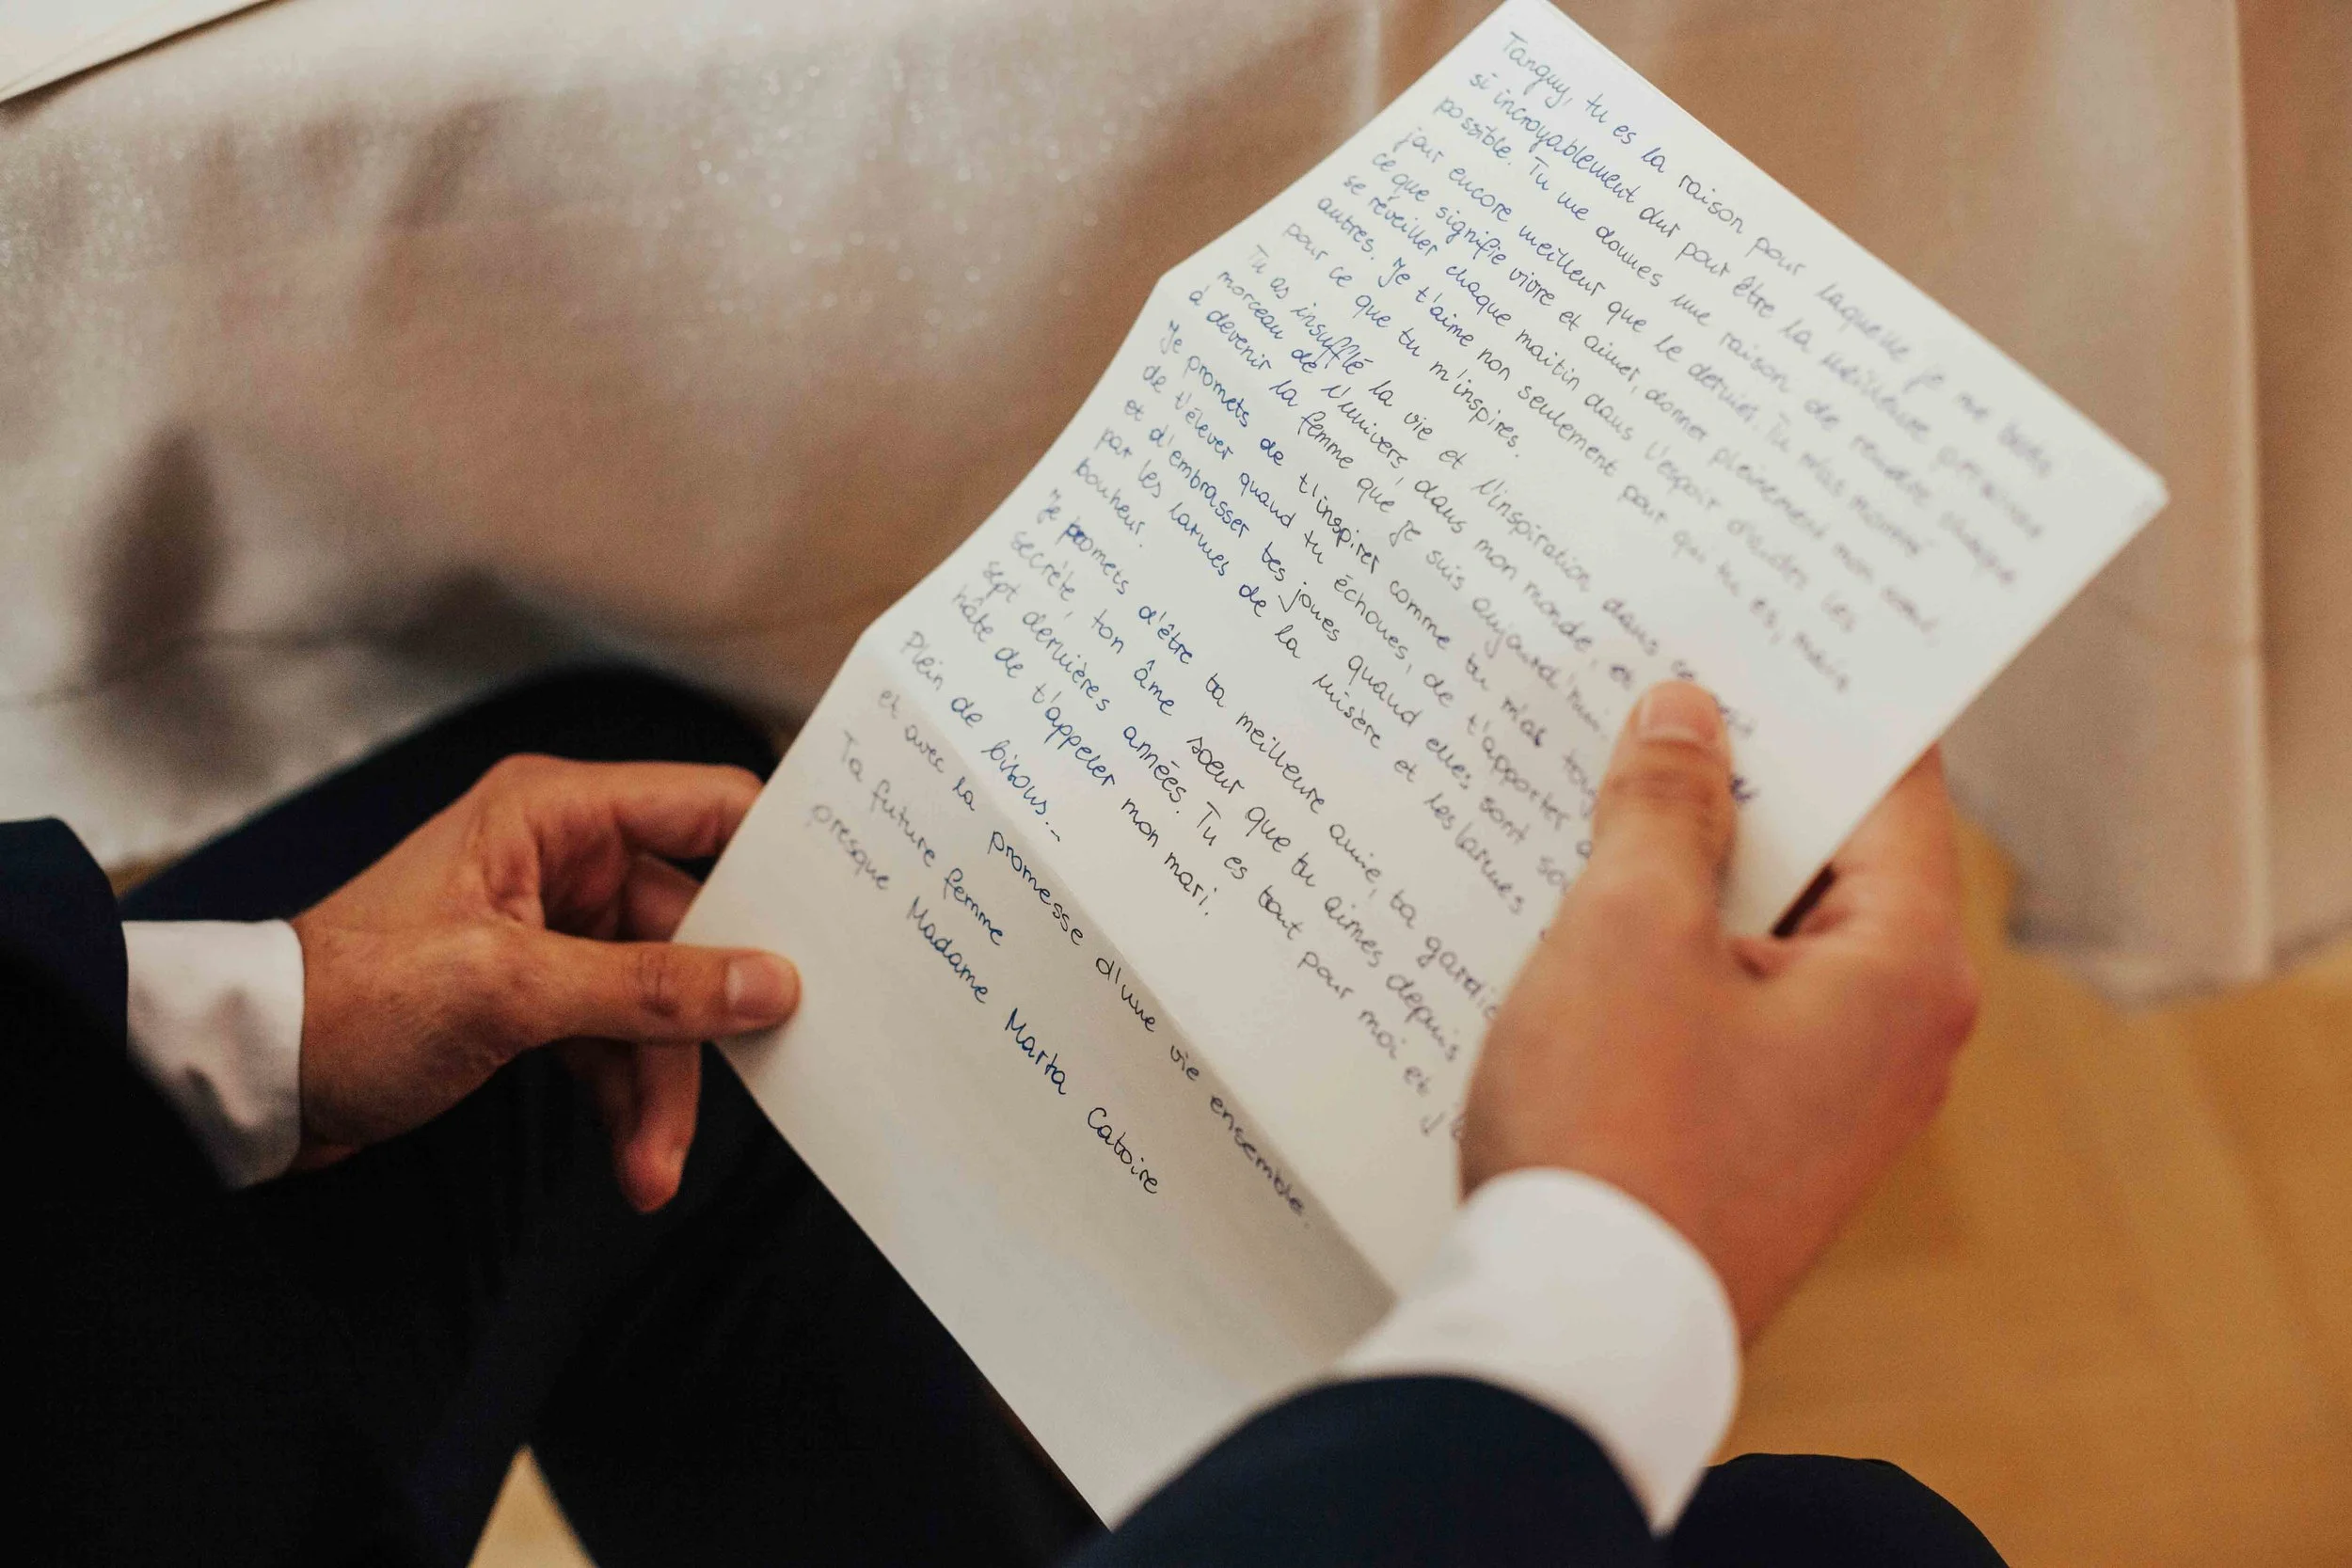 Tanguy, tu es la raison pour laquelle je me bats
si incroyablement dur pour être la meilleure personne
possible. Tu me donnes une raison de rendre chaque
jour encore meilleur que le dernier. Tu m'as montré
ce que signifie vivre et aimer, donner pleinement mon cœur,
se réveiller chaque maitin dans l'espoir d'aider les
autres. Je t'aime non seulement pour qui tu es, mais
pour ce que tu m'inspires.
Tu as insufflé la vie et l'inspiration dans ce petit
morceau de l'Univers, dans mon monde, et
à devenir la femme que je suis aujourd'hui.
Je promets de t'inspirer comme tu m'as
de t'élever quand tu échoues, de t'apporter
et d'embrasser tes joues quand elles sont
par les larmes de la misère et les larmes
bonheur.
Je promets d'être ta meilleure amie, ta
secrète, ton âme sœur que tu aimes depuis
sept dernières années. Tu es tout pour moi et j'ai
hâte de t'appeler mon mari.
Plein de bisous...
et avec la promesse d'une vie ensemble.
Ta future femme
presque Madame Marta Catoire